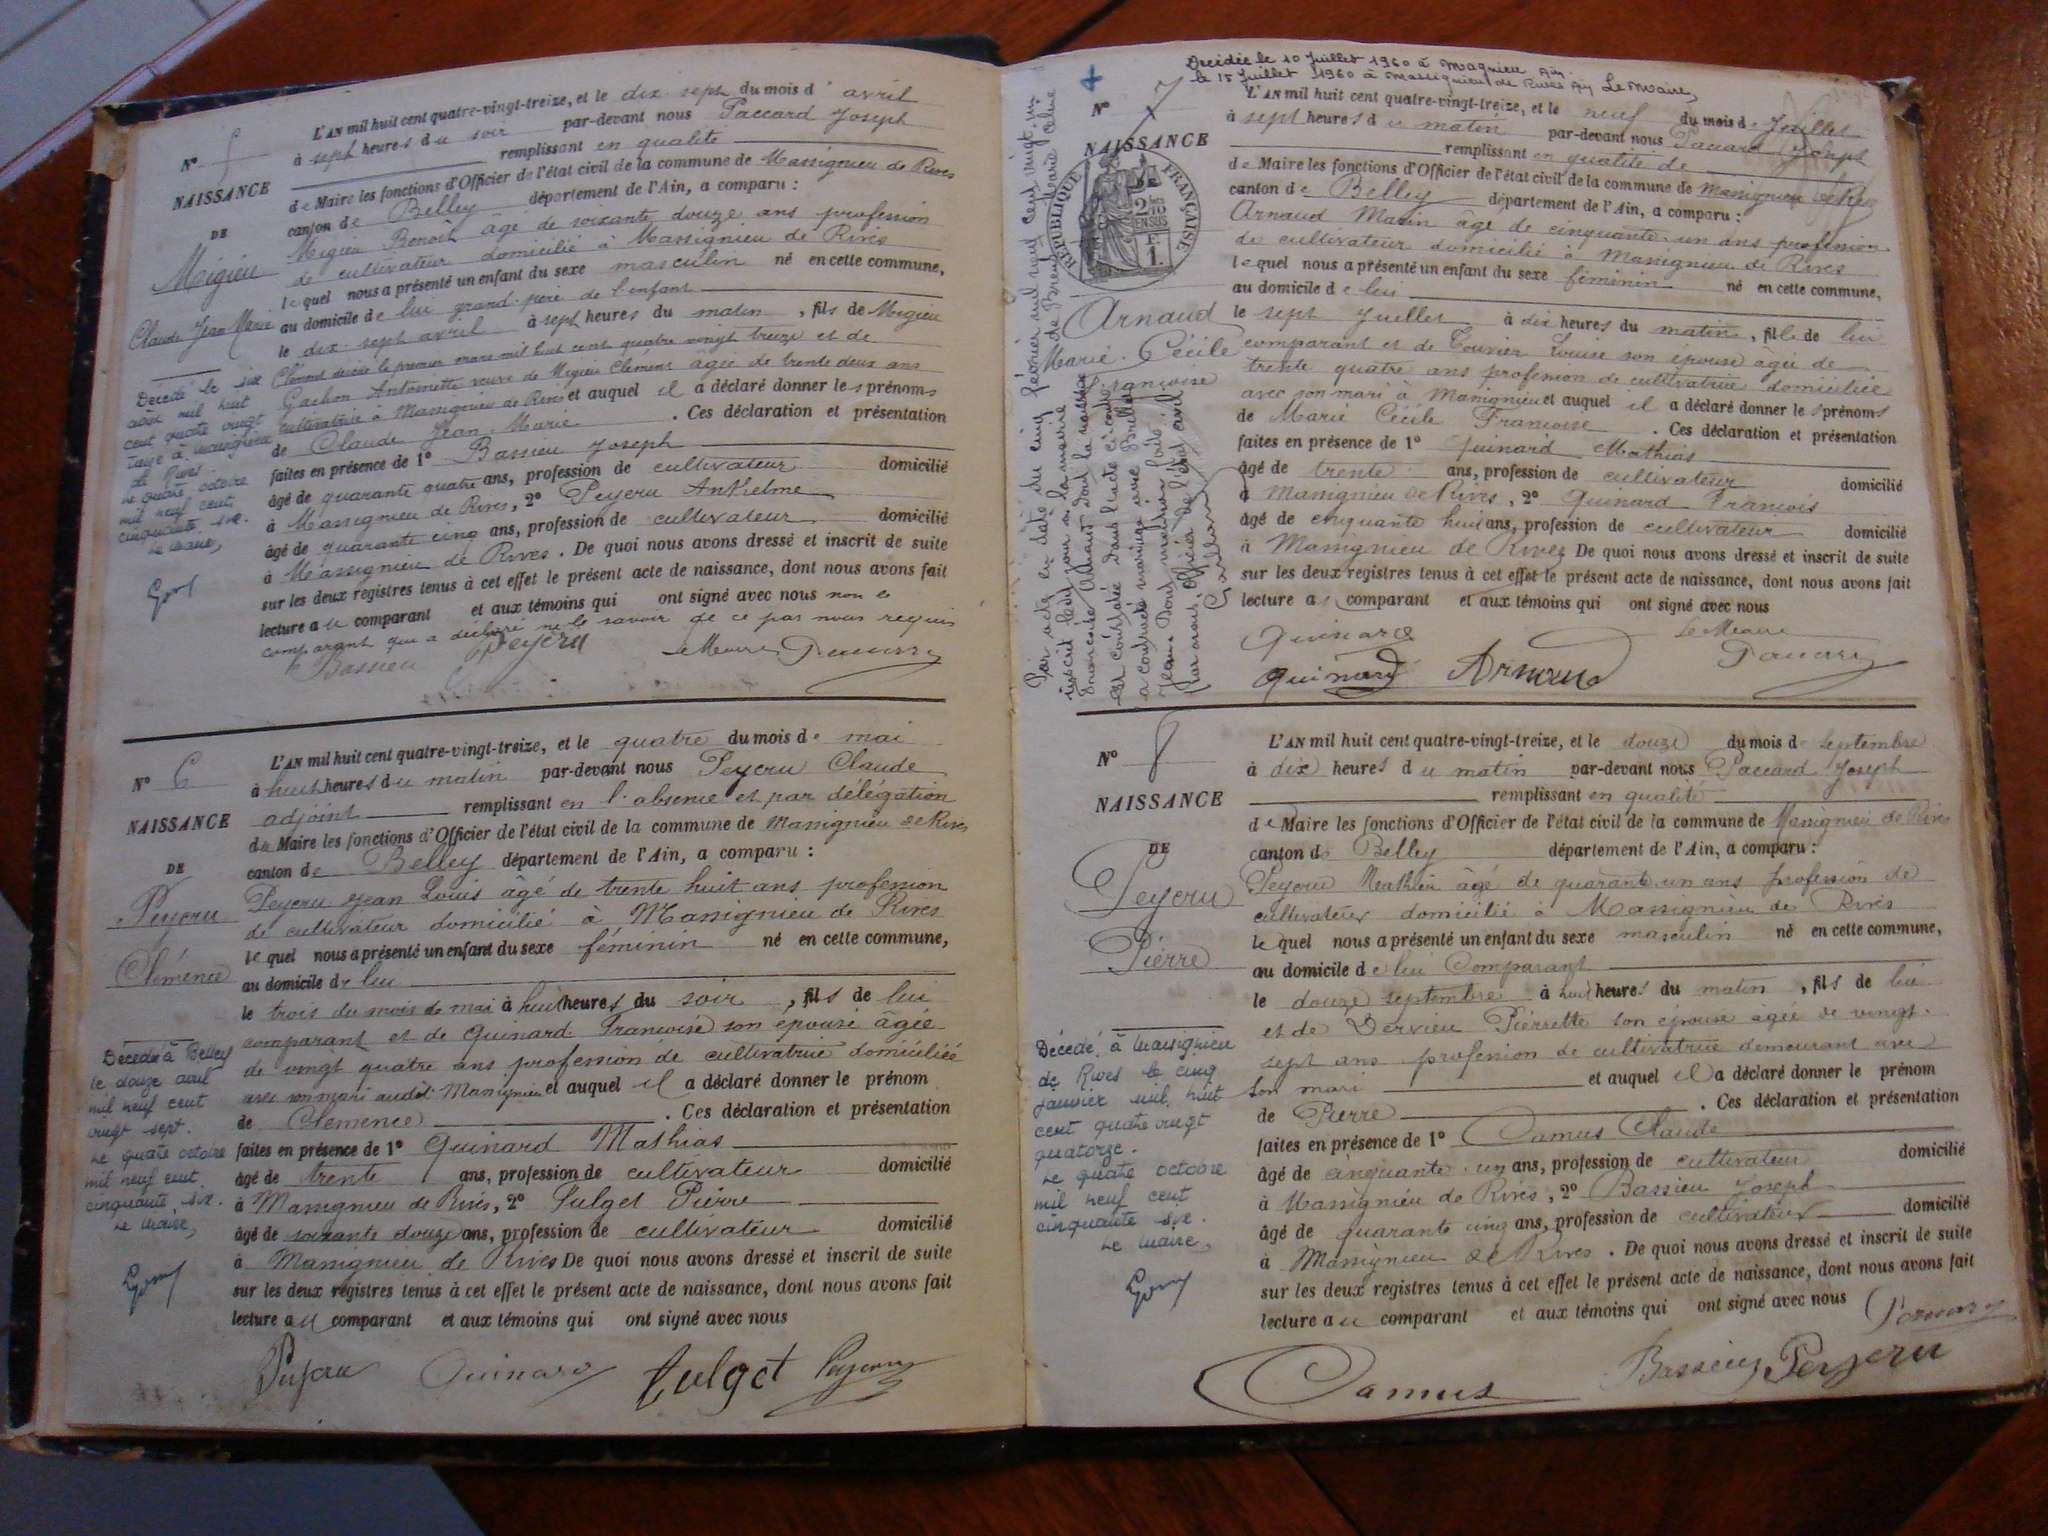 L'AN mil huit cent quatre-vingt-treize, et le dix sept du mois d'avril
à sept heures du soir par-devant nous Paccard Joseph
remplissant en qualité
de Maire les fonctions d'Officier de l'état civil de la commune de Massignieu de Rives
canton de Belley département de l'Ain, a comparu :
Migieu Benoit âgé de soixante douze ans profession
de cultivateur domicilié à Massignieu de Rives
lequel nous a présenté un enfant du sexe masculin né en cette commune,
au domicile de lui grand-père de l'enfant
le dix-sept avril à sept heures du matin, fils de Migieu
Clément décédé le premier mars mil huit cent quatre vingt treize et de
Gachon Antoinette veuve de Migieu Clément âgée de trente deux ans
cultivatrice à Massignieu de Rives et auquel il a déclaré donner les prénoms
de Claude Jean Marie. Ces déclaration et présentation
faites en présence de 1° Bassieu Joseph
âgé de quarante quatre ans, profession de cultivateur domicilié
à Massignieu de Rives, 2° Peyeru Anthelme
âgé de quarante cinq ans, profession de cultivateur domicilié
à Massignieu de Rives. De quoi nous avons dressé et inscrit de suite
sur les deux registres tenus à cet effet le présent acte de naissance, dont nous avons fait
lecture au comparant et aux témoins qui ont signé avec nous non le
comparant qui a déclaré ne le savoir de ce par nous requis
Bassieu Peyeru Le Maire
N° 5
NAISSANCE
DE
Migieu
Claude Jean Marie
Décédé le six
août mil huit
cent quatre vingt
treize à Massignieu
de Rives.
Le quatre octobre
mil neuf cent
cinquante six.
Le Maire,
L'AN mil huit cent quatre-vingt-treize, et le quatre du mois de mai
à huit heures du matin par-devant nous Peyeru Claude
adjoint remplissant en l'absence et par délégation
du Maire les fonctions d'Officier de l'état civil de la commune de Massignieu de Rives
canton de Belley département de l'Ain, a comparu :
Peyeru Jean Louis âgé de trente huit ans profession
de cultivateur domicilié à Massignieu de Rives
lequel nous a présenté un enfant du sexe féminin né en cette commune,
au domicile de lui
le trois du mois de mai à huit heures du soir, fils de lui
comparant et de Quinard Françoise son épouse âgée
de vingt quatre ans profession de cultivatrice domiciliée
avec son mari audit Massignieu et auquel il a déclaré donner le prénom
de Clemence. Ces déclaration et présentation
faites en présence de 1° Quinard Mathias
âgé de trente ans, profession de cultivateur domicilié
à Massignieu de Rives, 2° Tulget Pierre
âgé de soixante douze ans, profession de cultivateur domicilié
à Massignieu de Rives De quoi nous avons dressé et inscrit de suite
sur les deux registres tenus à cet effet le présent acte de naissance, dont nous avons fait
lecture au comparant et aux témoins qui ont signé avec nous
Peyeru Quinard Tulget Peyeru
N° 6
NAISSANCE
DE
Peyeru
Clémence
Décédée à Belley
le douze avril
mil neuf cent
vingt sept.
Le quatre octobre
mil neuf cent
cinquante six.
Le Maire,
Décédée le 10 Juillet 1960 à Magnieu Ain.
le 15 Juillet 1960 à Massignieu de Rives Ain Le Maire,
L'AN mil huit cent quatre-vingt-treize, et le neuf du mois de Juillet
à sept heures du matin par-devant nous Paccard Joseph
remplissant en qualité de
de Maire les fonctions d'Officier de l'état civil de la commune de Massignieu de Rives
canton de Belley département de l'Ain, a comparu :
Arnaud Marin âgé de cinquante-un ans profession
de cultivateur domicilié à Massignieu de Rives
lequel nous a présenté un enfant du sexe féminin né en cette commune,
au domicile de lui
le sept Juillet à dix heures du matin, fille de lui
comparant et de Touvier Louise son épouse âgée de
trente quatre ans profession de cultivatrice domiciliée
avec son mari à Massignieu et auquel il a déclaré donner les prénoms
de Marie Cécile Françoise. Ces déclaration et présentation
faites en présence de 1° Quinard Mathias
âgé de trente ans, profession de cultivateur domicilié
à Massignieu de Rives, 2° Quinard François
âgé de cinquante huit ans, profession de cultivateur domicilié
à Massignieu de Rives De quoi nous avons dressé et inscrit de suite
sur les deux registres tenus à cet effet le présent acte de naissance, dont nous avons fait
lecture au comparant et aux témoins qui ont signé avec nous
Quinard Le Maire
Quinard Arnaud Paccard
N° 7
NAISSANCE
RÉPUBLIQUE FRANÇAISE
2/10 EN SUS
F. 1.
Arnaud
Marie-Cécile
Françoise
Par acte en date du cinq février mil neuf cent vingt un
L'AN mil huit cent quatre-vingt-treize, et le douze du mois de septembre
à dix heures du matin par-devant nous Paccard Joseph
remplissant en qualité
de Maire les fonctions d'Officier de l'état civil de la commune de Massignieu de Rives
canton de Belley département de l'Ain, a comparu :
Peyeru Mathieu âgé de quarante un ans profession de
cultivateur domicilié à Massignieu de Rives
lequel nous a présenté un enfant du sexe masculin né en cette commune,
au domicile de lui Comparant
le douze septembre à huit heures du matin, fils de lui
et de Dervieu Pierrette son épouse âgée de vingt-
sept ans profession de cultivatrice demeurant avec
son mari et auquel il a déclaré donner le prénom
de Pierre. Ces déclaration et présentation
faites en présence de 1° Camus Claude
âgé de cinquante-un ans, profession de cultivateur domicilié
à Massignieu de Rives, 2° Bassieu Joseph
âgé de quarante cinq ans, profession de cultivateur domicilié
à Massignieu de Rives. De quoi nous avons dressé et inscrit de suite
sur les deux registres tenus à cet effet le présent acte de naissance, dont nous avons fait
lecture au comparant et aux témoins qui ont signé avec nous
Camus Bassieu Peyeru
N° 8
NAISSANCE
DE
Peyeru
Pierre
Décédé à Massignieu
de Rives le cinq
janvier mil huit
cent quatre vingt
quatorze.
Le quatre octobre
mil neuf cent
cinquante six.
Le Maire,